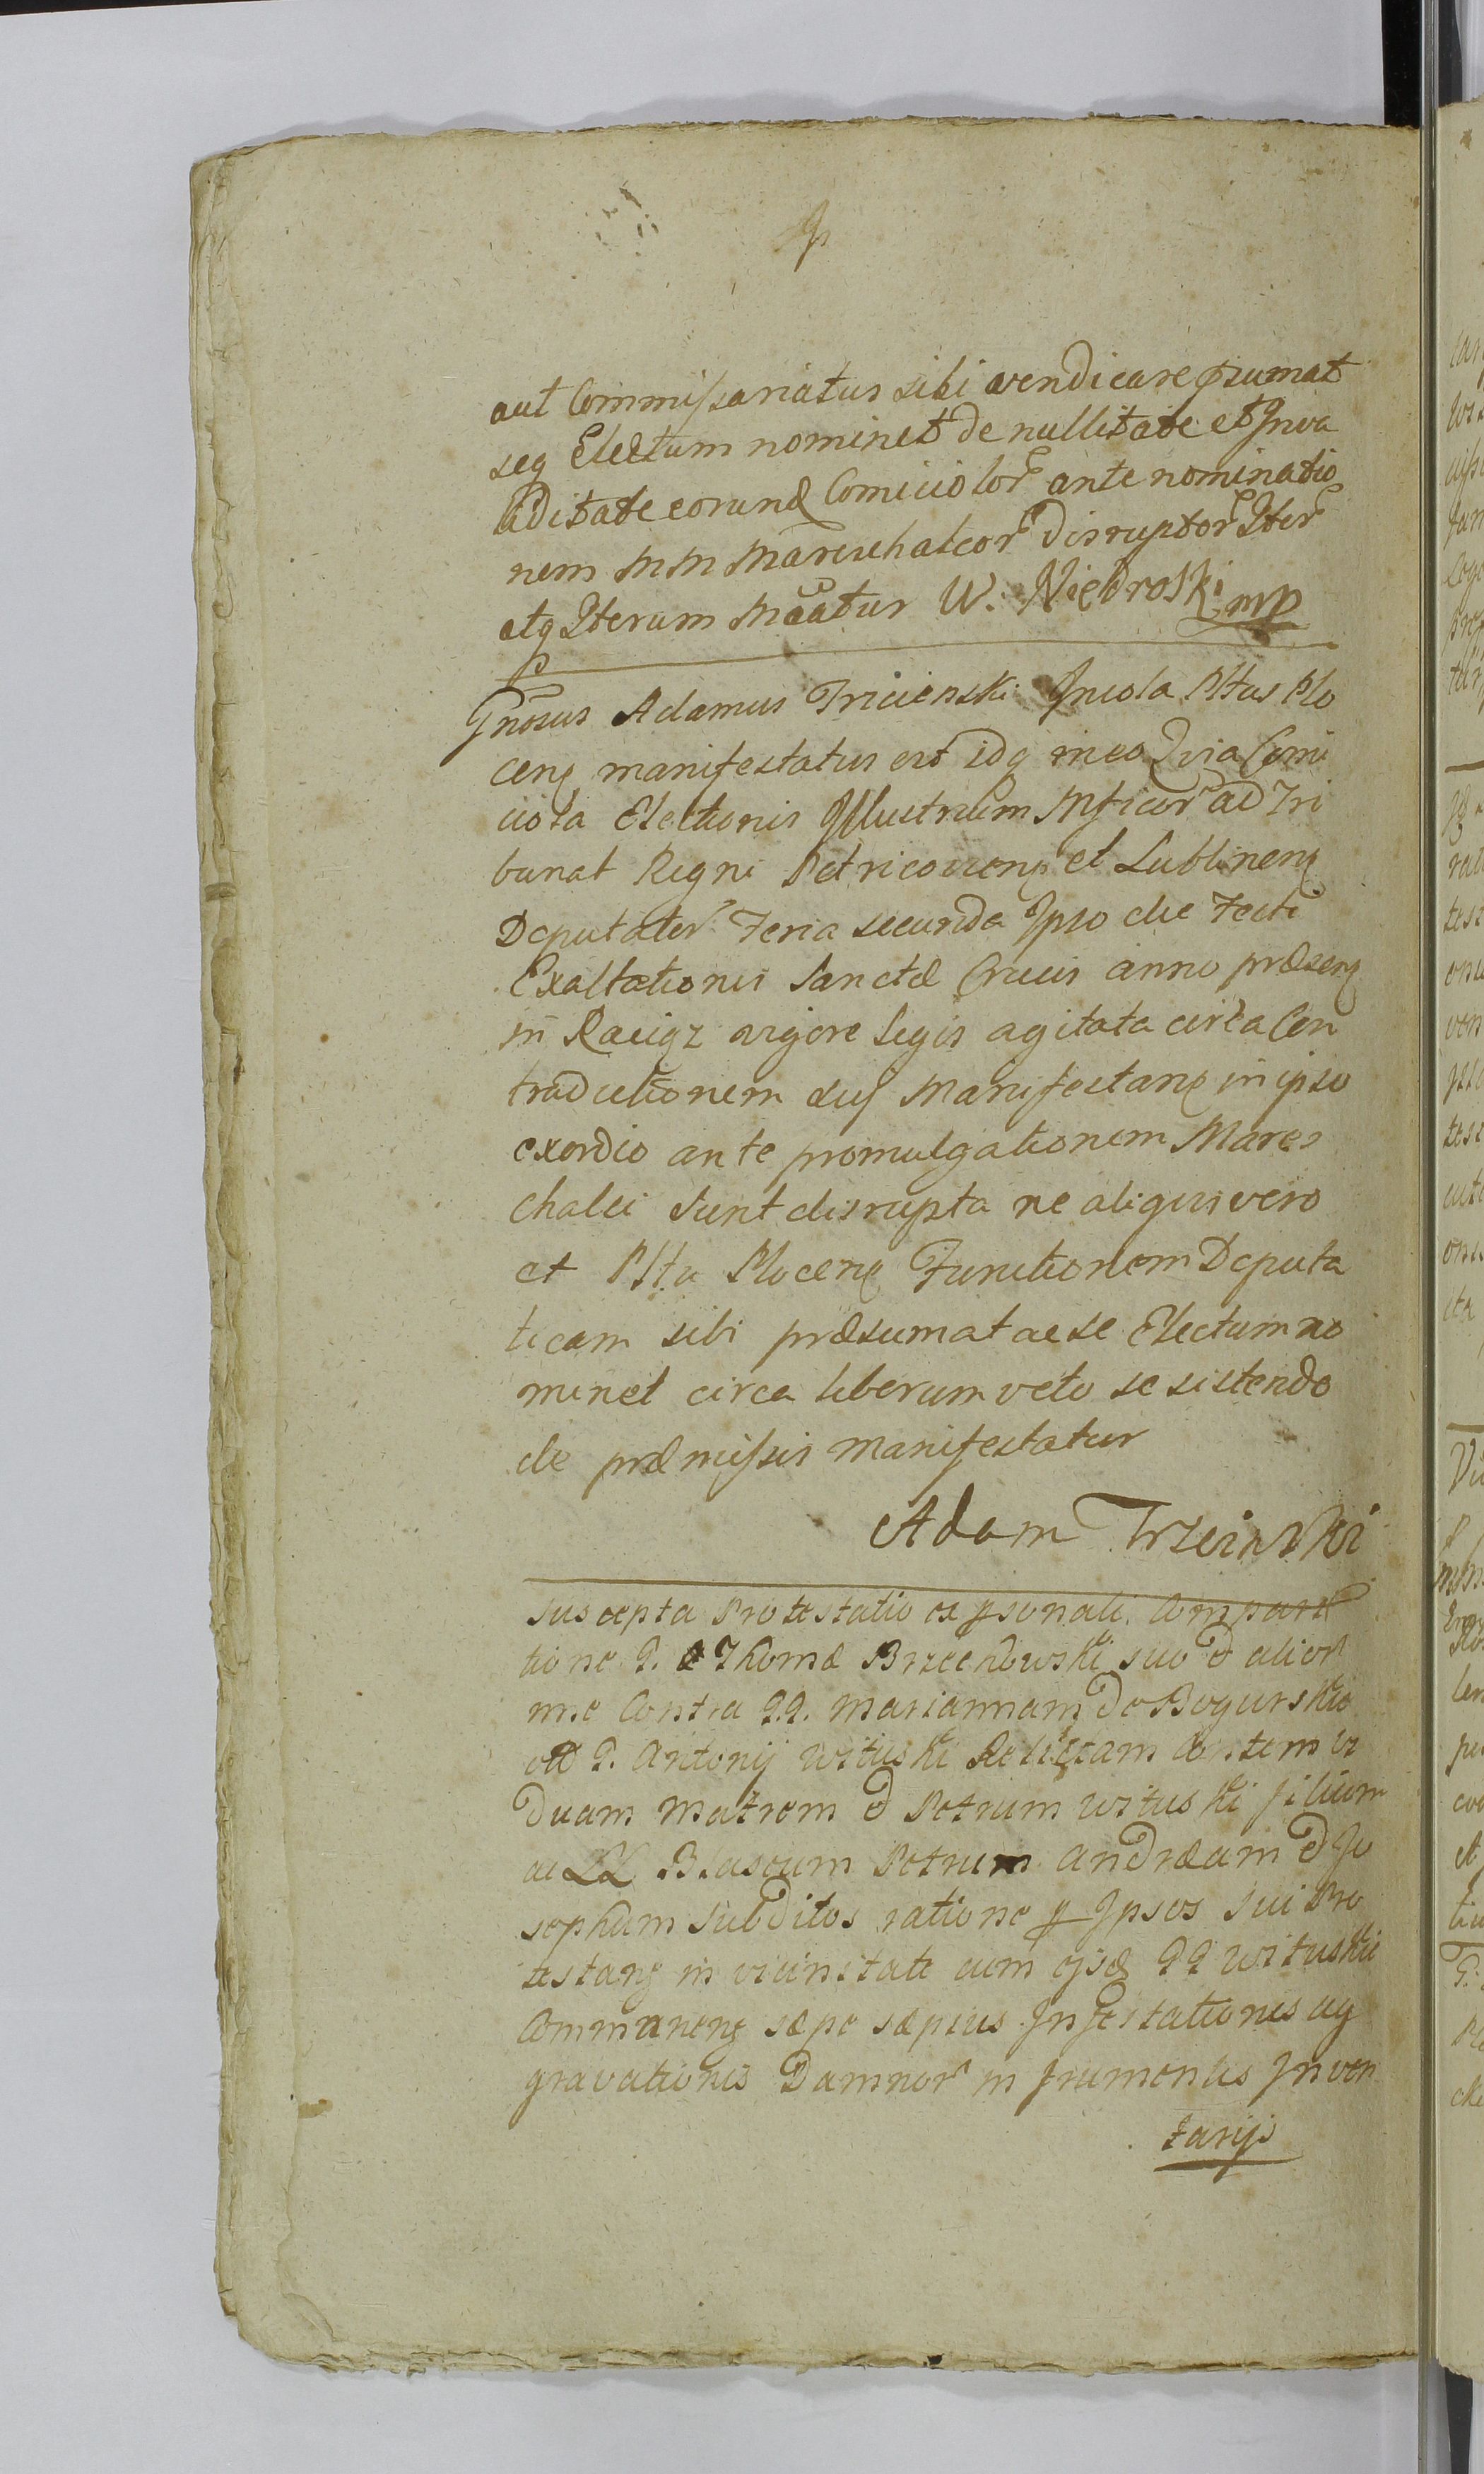 aut Commissariatus sibi vendicare psumat
seq Electum nominet de nullitate et Inva
liditate eorund Comiciolor ante nominatio
nem MM Mareschalcor disruptor Iter
atq Iterum Maatur W. Niedroski mp
Gnosus Adamus Trzcienski Incola Pltus Plo
cens manifestatus est idq in eo Quia Comi
ciola Electionis Illustrium Mficor ad Tri
bunat Regni Petricoviens et Lublinens
Deputator Feria secunda Ipso die Festi
Exaltationis Sanctæ Crucis anno præsens
in Raciąz vigore Legis agitata circa Con
tradictionem sui Manifestans in ipso
exordio ante promulgationem Mares
chalci sunt disrupta ne aliquis vero
et Pltu Plocens Functionem Deputa
ticam sibi præsumat ac se Electum no
minet circa liberum veto se sistendo
de præmissis manifestatur
Adam Trzcinski
suscepta Protestatio ex psonali Compari
tione G. Thomæ Brzechowski suo & alior
nne Contra GG. Mariannam de Bogurskie
olt G. Antonij Wituski Relictam Consortem vi
duam Matrem & Petrum Wituski filium
ac LL Blasium Petrum Andræam & Jo
sephum subditos ratione p Ipsos sui Pro
testans in vicinitate cum ejsd GG Wituskie
Commanens sæpe sæpius Infestationis ag
gravationis Damnor in frumentis Inven
tarijs